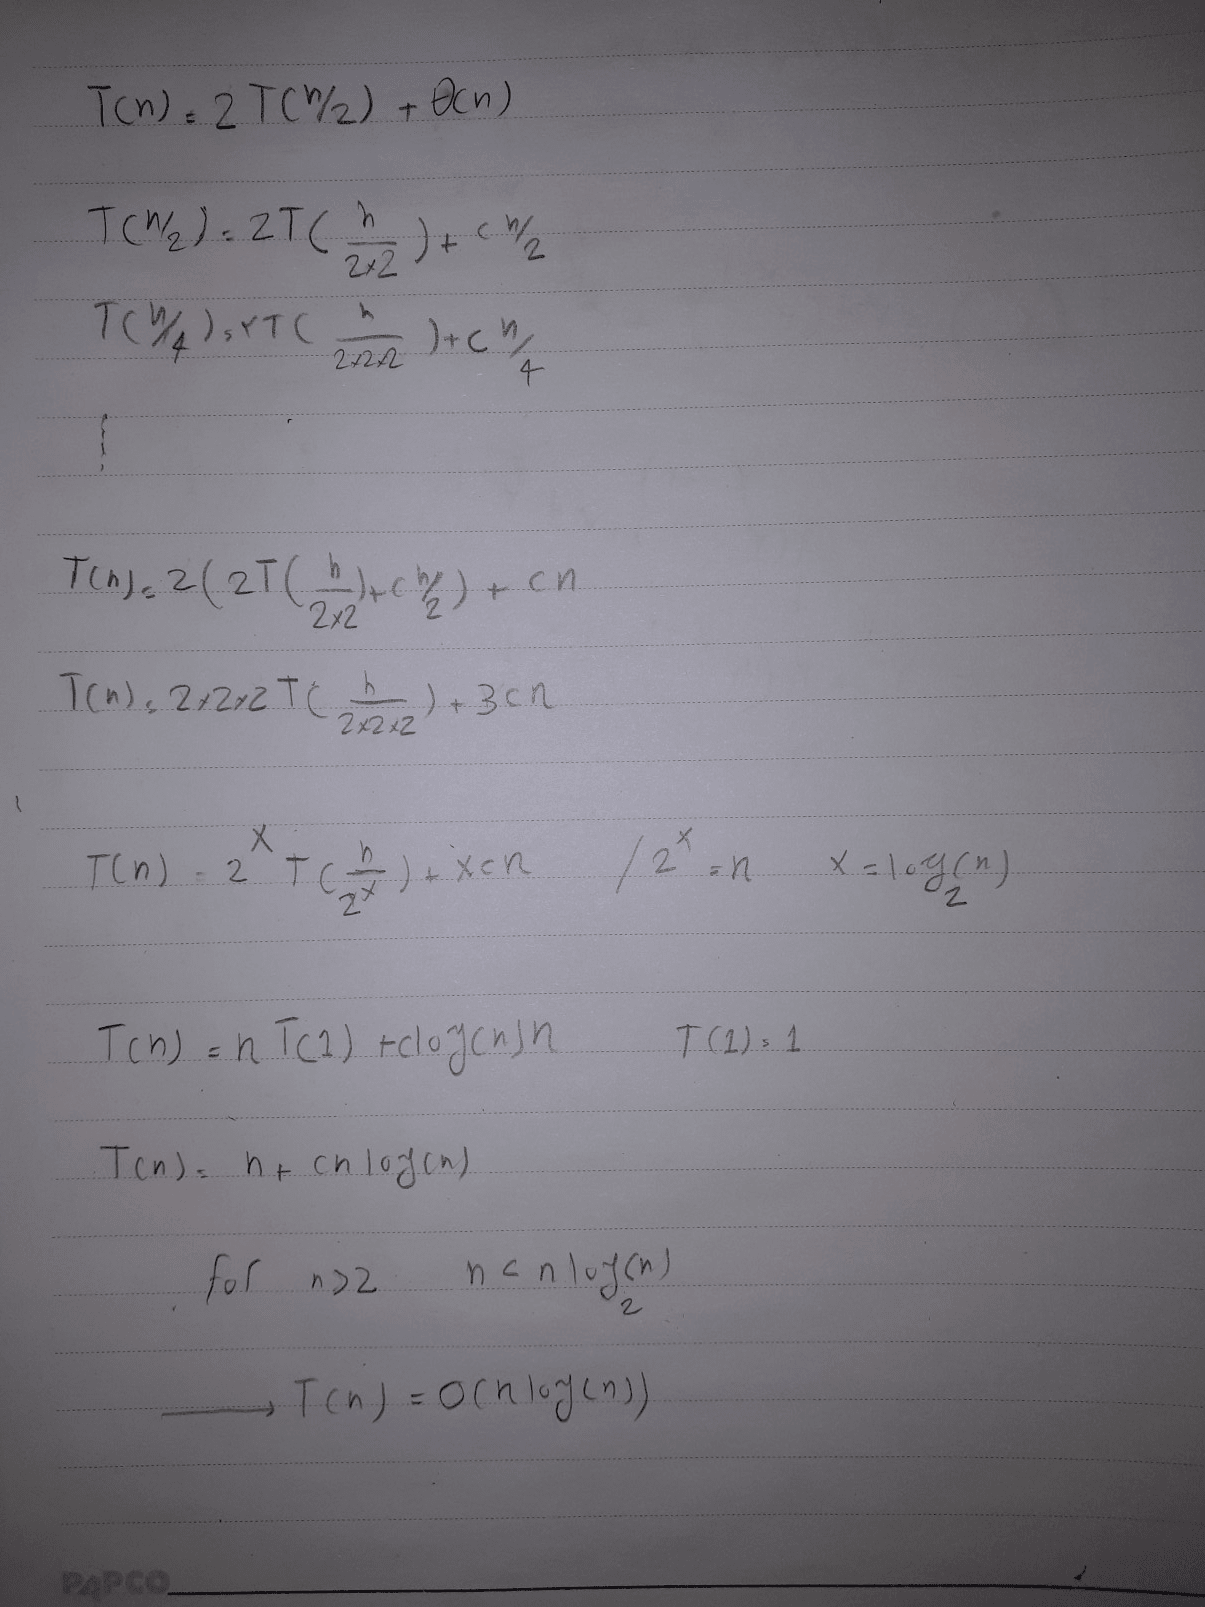 T(n) = 2 T(n/2) + θ(n)
T(n/2) = 2T(n/(2×2)) + c n/2
T(n/4) = ۲T(n/(2×2×2)) + c n/4
T(n) = 2(2T(n/(2×2)) + c n/2) + cn
T(n) = 2×2×2 T(n/(2×2×2)) + 3cn
T(n) = 2^x T(n/2^x) + xcn / 2^x = n x = log_2(n)
T(n) = n T(1) + clog(n)n T(1) = 1
T(n) = n + cn log(n)
for n>2 n < n log_2(n)
→ T(n) = O(n log(n))
PAPCO